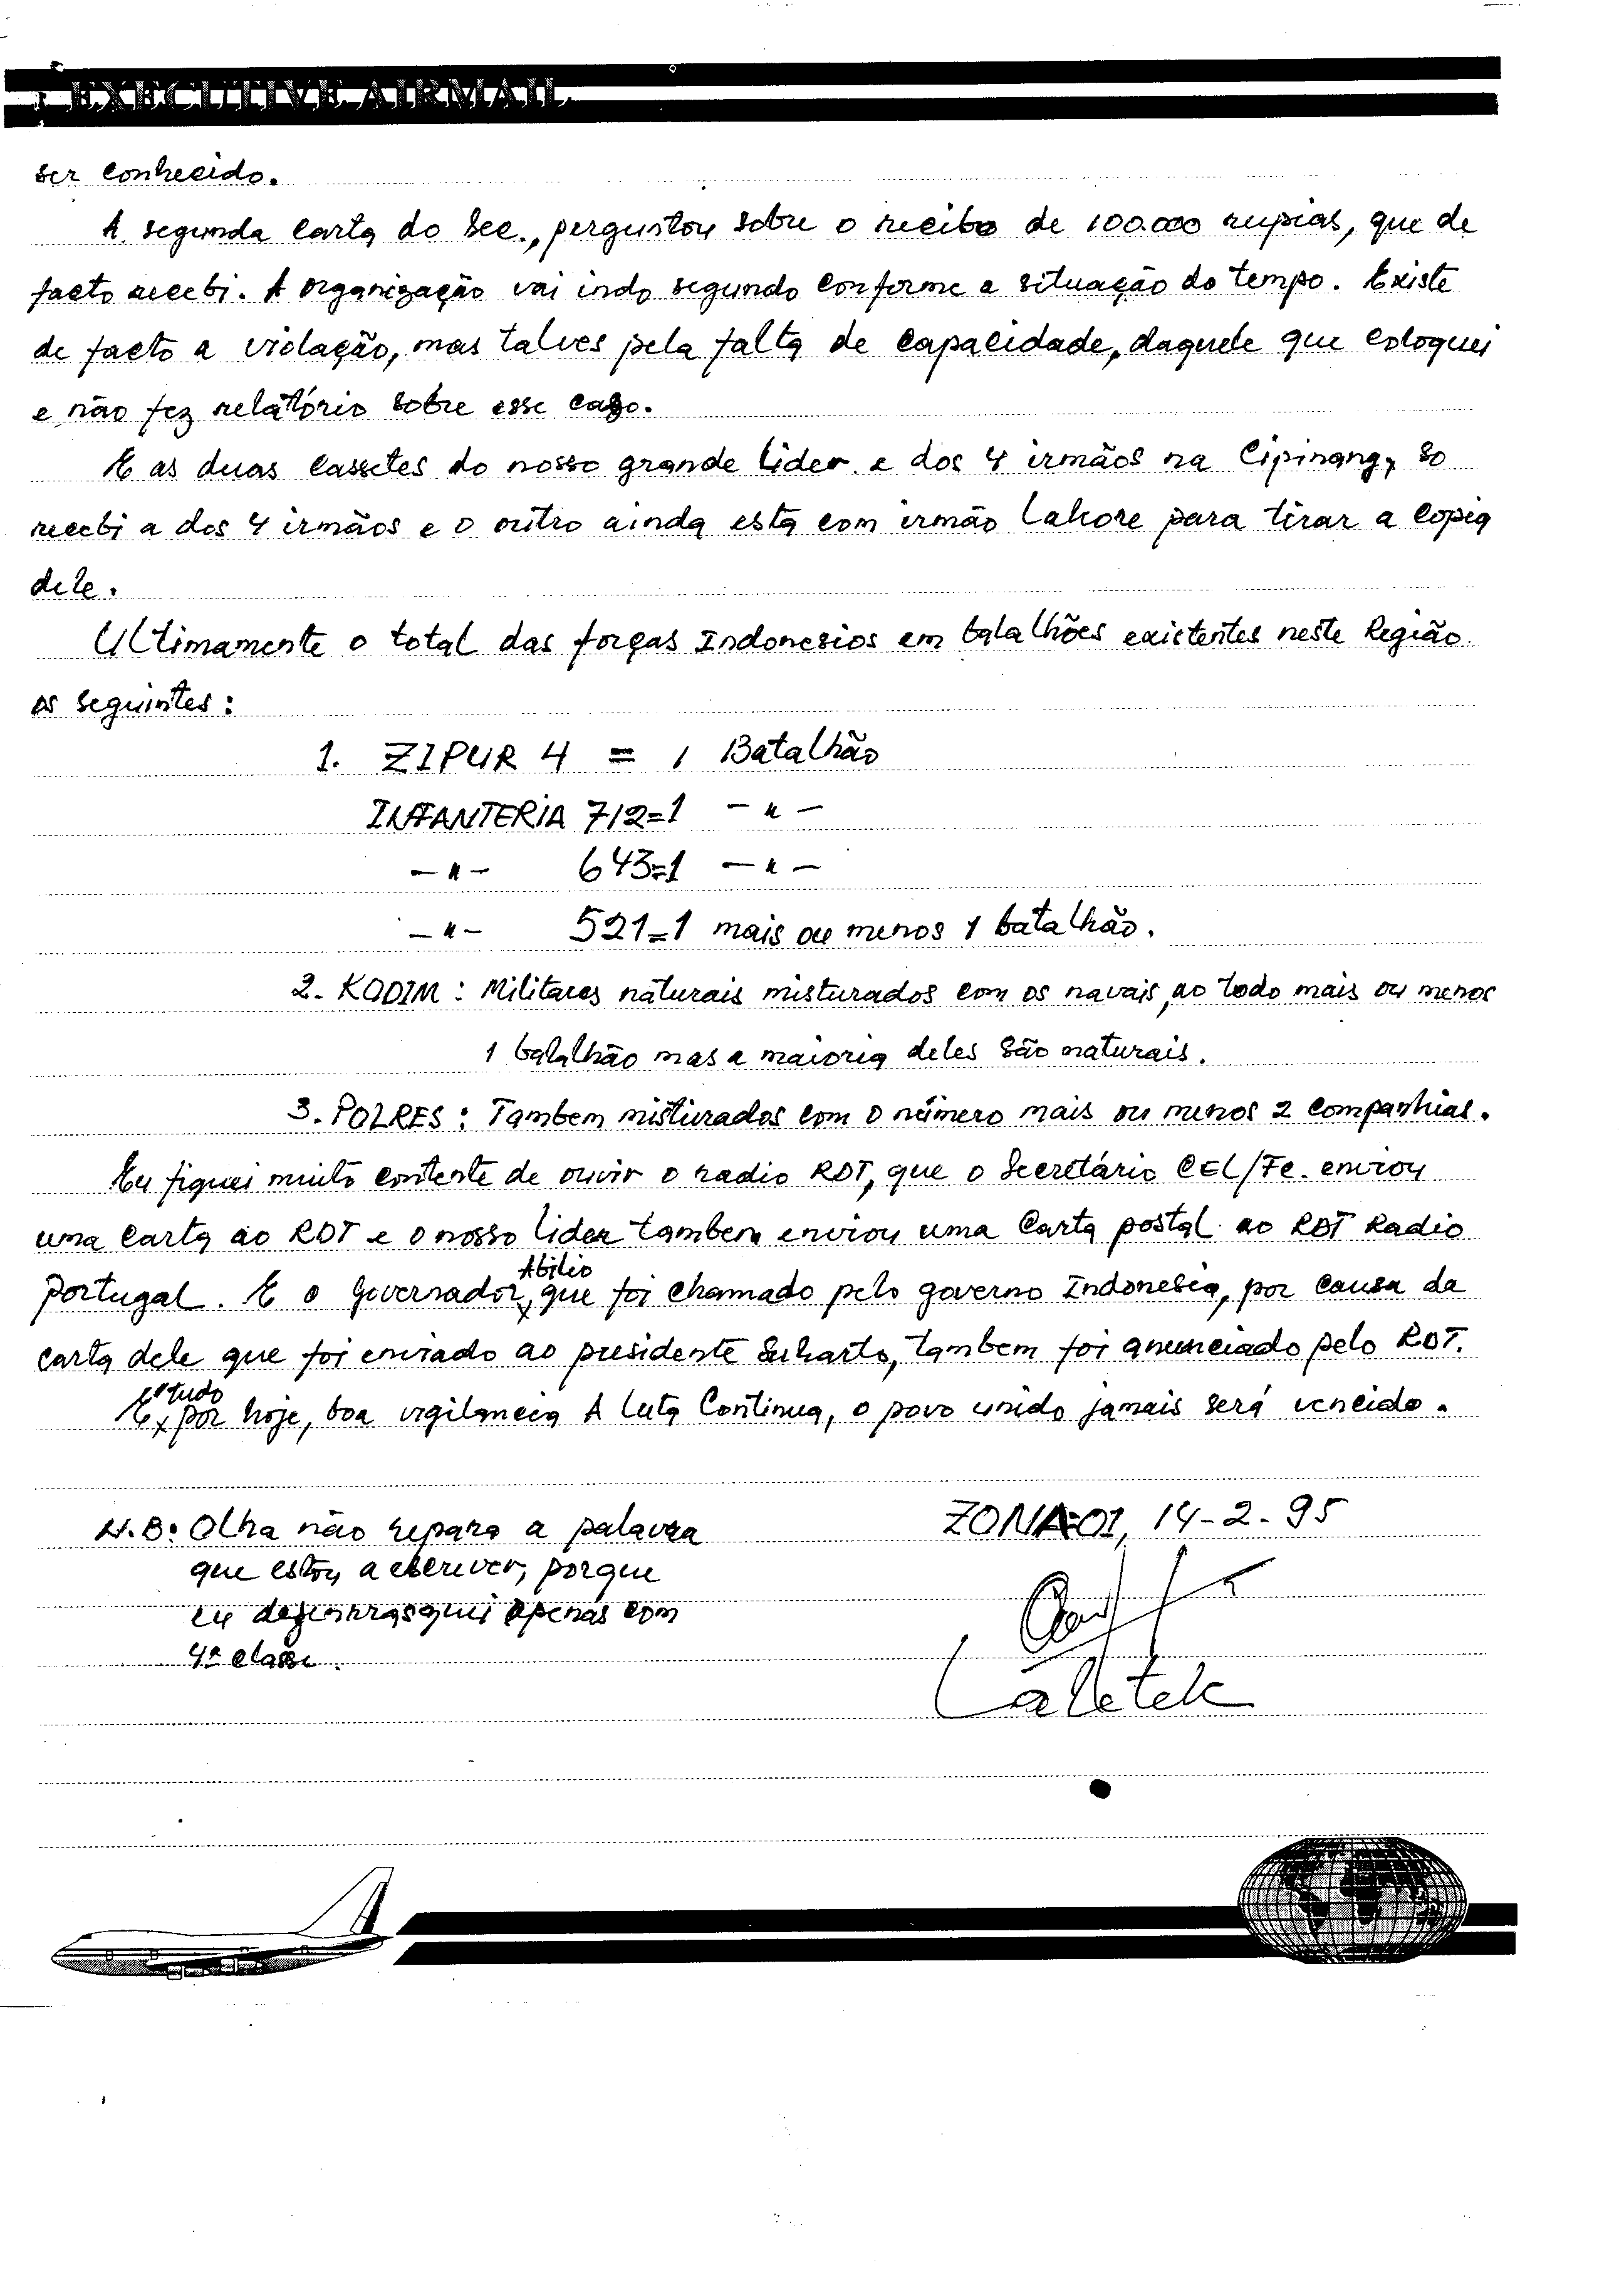 EXECUTIVE AIRMAIL
ser conhecido.
A segunda carta do Sec., perguntou sobre o recibo de 100.000 rupias, que de
facto recebi. A organização vai indo segundo conforme a situação do tempo. Existe
de facto a violação, mas talves pela falta de capacidade, daquele que coloquei
e não fez relatório sobre esse caso.
E as duas cassetes do nosso grande lider e dos 4 irmãos na Cipinang, so
recebi a dos 4 irmãos e o outro ainda esta com irmão Lahore para tirar a copia
dele.
Ultimamente o total das forças Indonesios em batalhões existentes neste Região
os seguintes:
1. ZIPUR 4 = 1 Batalhão
INFANTERIA 712=1 -"-
-"- 643=1 -"-
-"- 521=1 mais ou menos 1 batalhão.
2. KODIM: Militares naturais misturados com os navais, ao todo mais ou menos
1 batalhão mas a maioria deles são naturais.
3. POLRES: Tambem misturados com o número mais ou menos 2 companhias.
Eu fiquei muito contente de ouvir o radio RDT, que o Secretário CEL/Fe. enviou
uma carta ao RDT e o nosso lider tambem enviou uma carta postal ao RDT Radio
Abilio
Portugal. E o Governador, que foi chamado pelo governo Indonesia, por causa da
carta dele que foi enviado ao presidente Suharto, tambem foi anunciado pelo RDT.
é tudo
E por hoje, boa vigilancia A Luta Continua, o povo unido jamais será vencido.
N.B: Olha não repara a palavra
que estou a escriver, porque
eu desenrasquei apenas com
4ª classe.
ZONA-01, 14-2-95